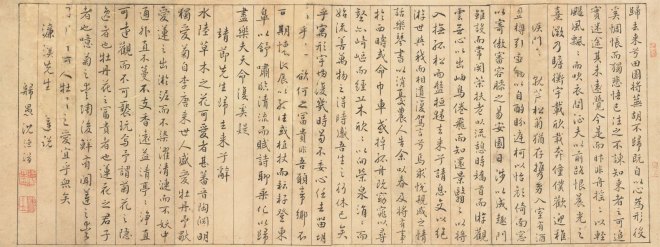 歸去來兮田園將蕪胡不歸既自以心為形役
奚惆悵而獨悲悟已往之不諫知來者之可追
實迷途其未遠覺今是而昨非舟搖搖以輕
颺風飄飄而吹衣問征夫以前路恨晨光之
熹微乃瞻衡宇載欣載奔僮僕歡迎稚子
候門三徑就荒松菊猶存攜幼入室有酒
盈樽引壺觴以自酌眄庭柯以怡顏倚南窗
以寄傲審容膝之易安園日涉以成趣門
雖設而常關策扶老以流憩時矯首而遐觀
雲無心以出岫鳥倦飛而知還景翳翳以將
入撫孤松而盤桓歸去來兮請息交以絕
游世與我而相遺復駕言兮焉求悅親戚之情
話樂琴書以消憂農人告余以春及將有事
於西疇或命巾車或棹孤舟既窈窕以尋
壑亦崎嶇而經丘木欣欣以向榮泉涓涓而
始流善萬物之得時感吾生之行休已矣
乎寓形宇內復幾時曷不委心任去留胡
為乎遑遑欲何之富貴非吾願帝鄉不
可期懷良辰以孤往或植杖而耘耔登東
皋以舒嘯臨清流而賦詩聊乘化以歸
盡樂夫天命復奚疑
靖節先生歸去來兮辭
水陸草木之花可愛者甚蕃晉陶淵明
獨愛菊自李唐來世人盛愛牡丹予獨
愛蓮之出淤泥而不染濯清漣而不妖中
通外直不蔓不支香遠益清亭亭淨直
可遠觀而不可褻玩焉予謂菊花之隱
逸者也牡丹花之富貴者也蓮花之君子
者也噫菊之愛陶後鮮有聞蓮之愛同
予者何人牡丹之愛宜乎眾矣
濂溪先生愛蓮說
歸愚沈德潛